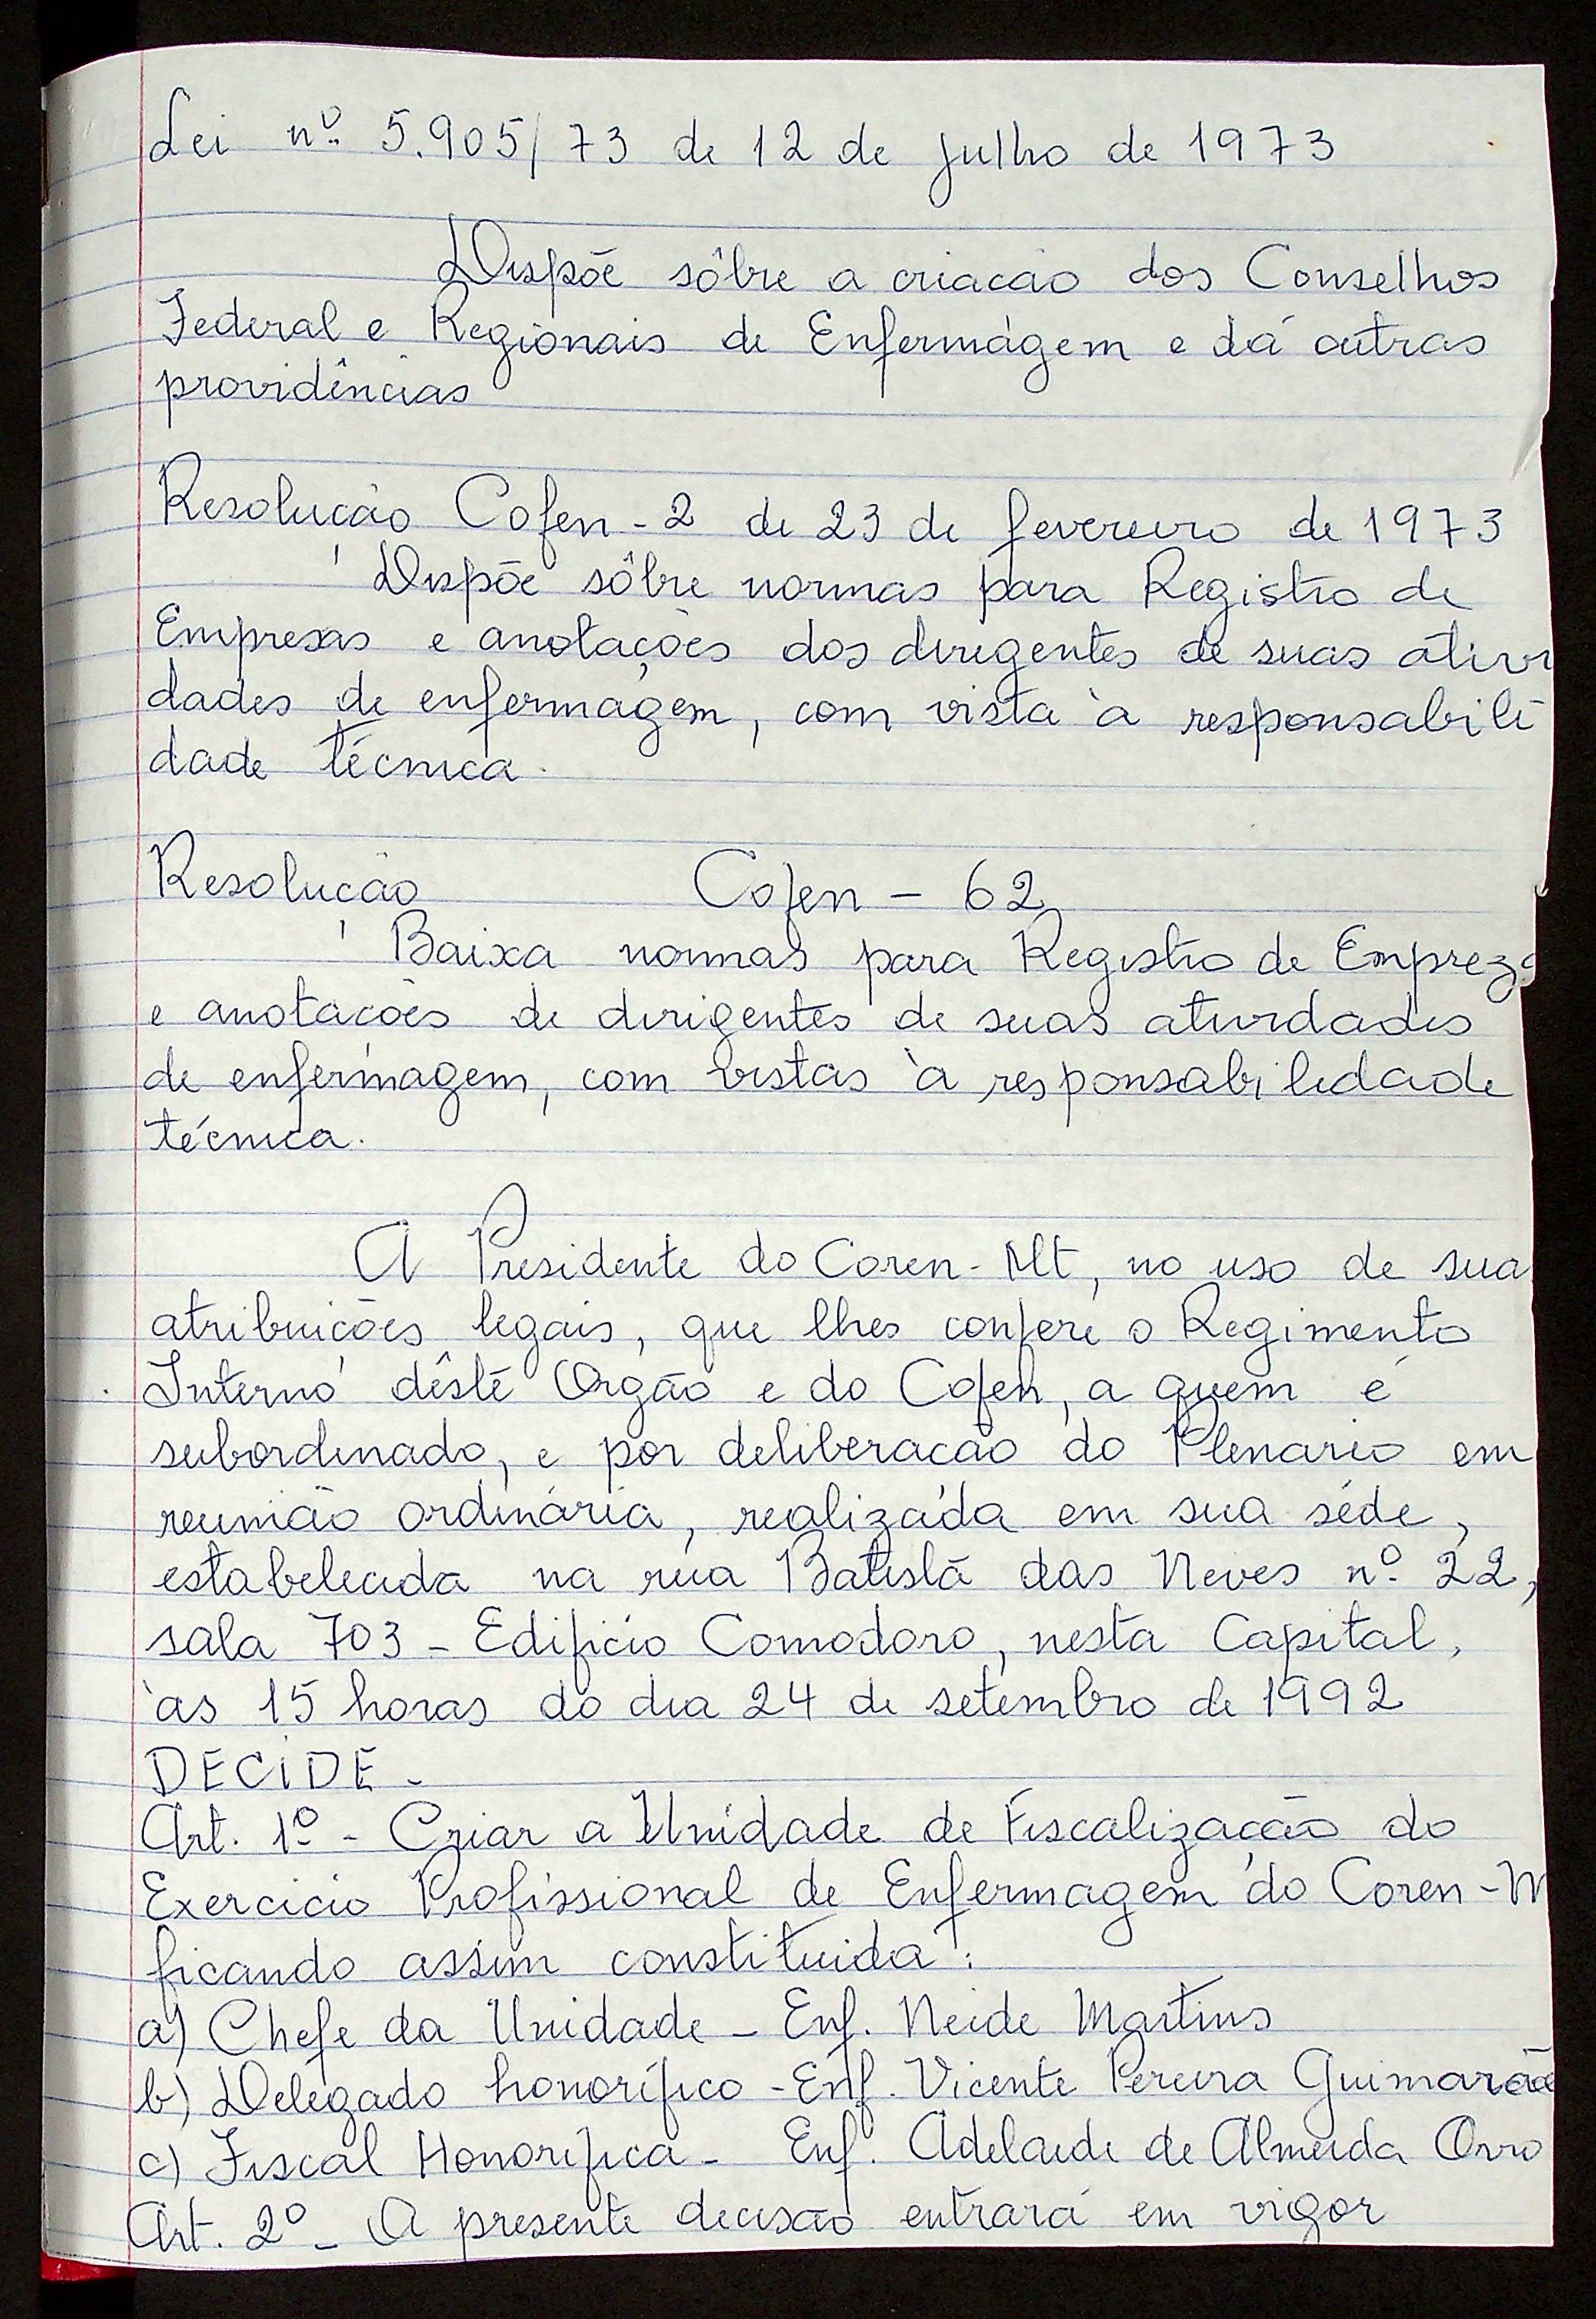 Lei nº 5.905/73 de 12 de julho de 1973
Dispõe sôbre a criação dos Conselhos
Federal e Regionais de Enfermagem e dá outras
providências
Resolução Cofen - 2 de 23 de fevereiro de 1973
Dispõe sôbre normas para Registro de
Empresas e anotações dos dirigentes de suas ativi
dades de enfermagem, com vista à responsabili
dade técnica.
Resolução Cofen - 62
Baixa normas para Registro de Empreza
e anotações de dirigentes de suas atividades
de enfermagem, com vistas à responsabilidade
técnica.
A Presidente do Coren-Mt, no uso de sua
atribuições legais, que lhes confere o Regimento
Interno dêste Orgão e do Cofen, a quem é
subordinado, e por deliberação do Plenario em
reunião ordinária, realizada em sua séde,
estabelecida na rua Batista das Neves nº 22,
sala 703 - Edificio Comodoro, nesta Capital,
às 15 horas do dia 24 de setembro de 1992
DECIDE -
Art. 1º - Criar a Unidade de Fiscalização do
Exercicio Profissional de Enfermagem do Coren-M
ficando assim constituida:
a) Chefe da Unidade - Enf. Neide Martins
b) Delegado honorífico - Enf. Vicente Pereira Guimarãe
c) Fiscal Honorifica - Enf. Adelaide de Almeida Orro
Art. 2º - A presente decisão entrará em vigor